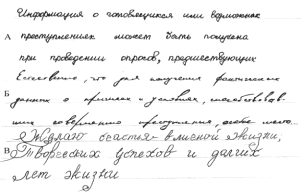 Информация о готовящихся или возможных
А преступлениях может быть получена
при проведении опросов, предшествующих
Естественно, что для получения фактических
Б данных о причинах и условиях, способствовав-
ших совершению преступления, особо
Желаю счастья в личной жизни,
В Творческих успехов и долгих
лет жизни